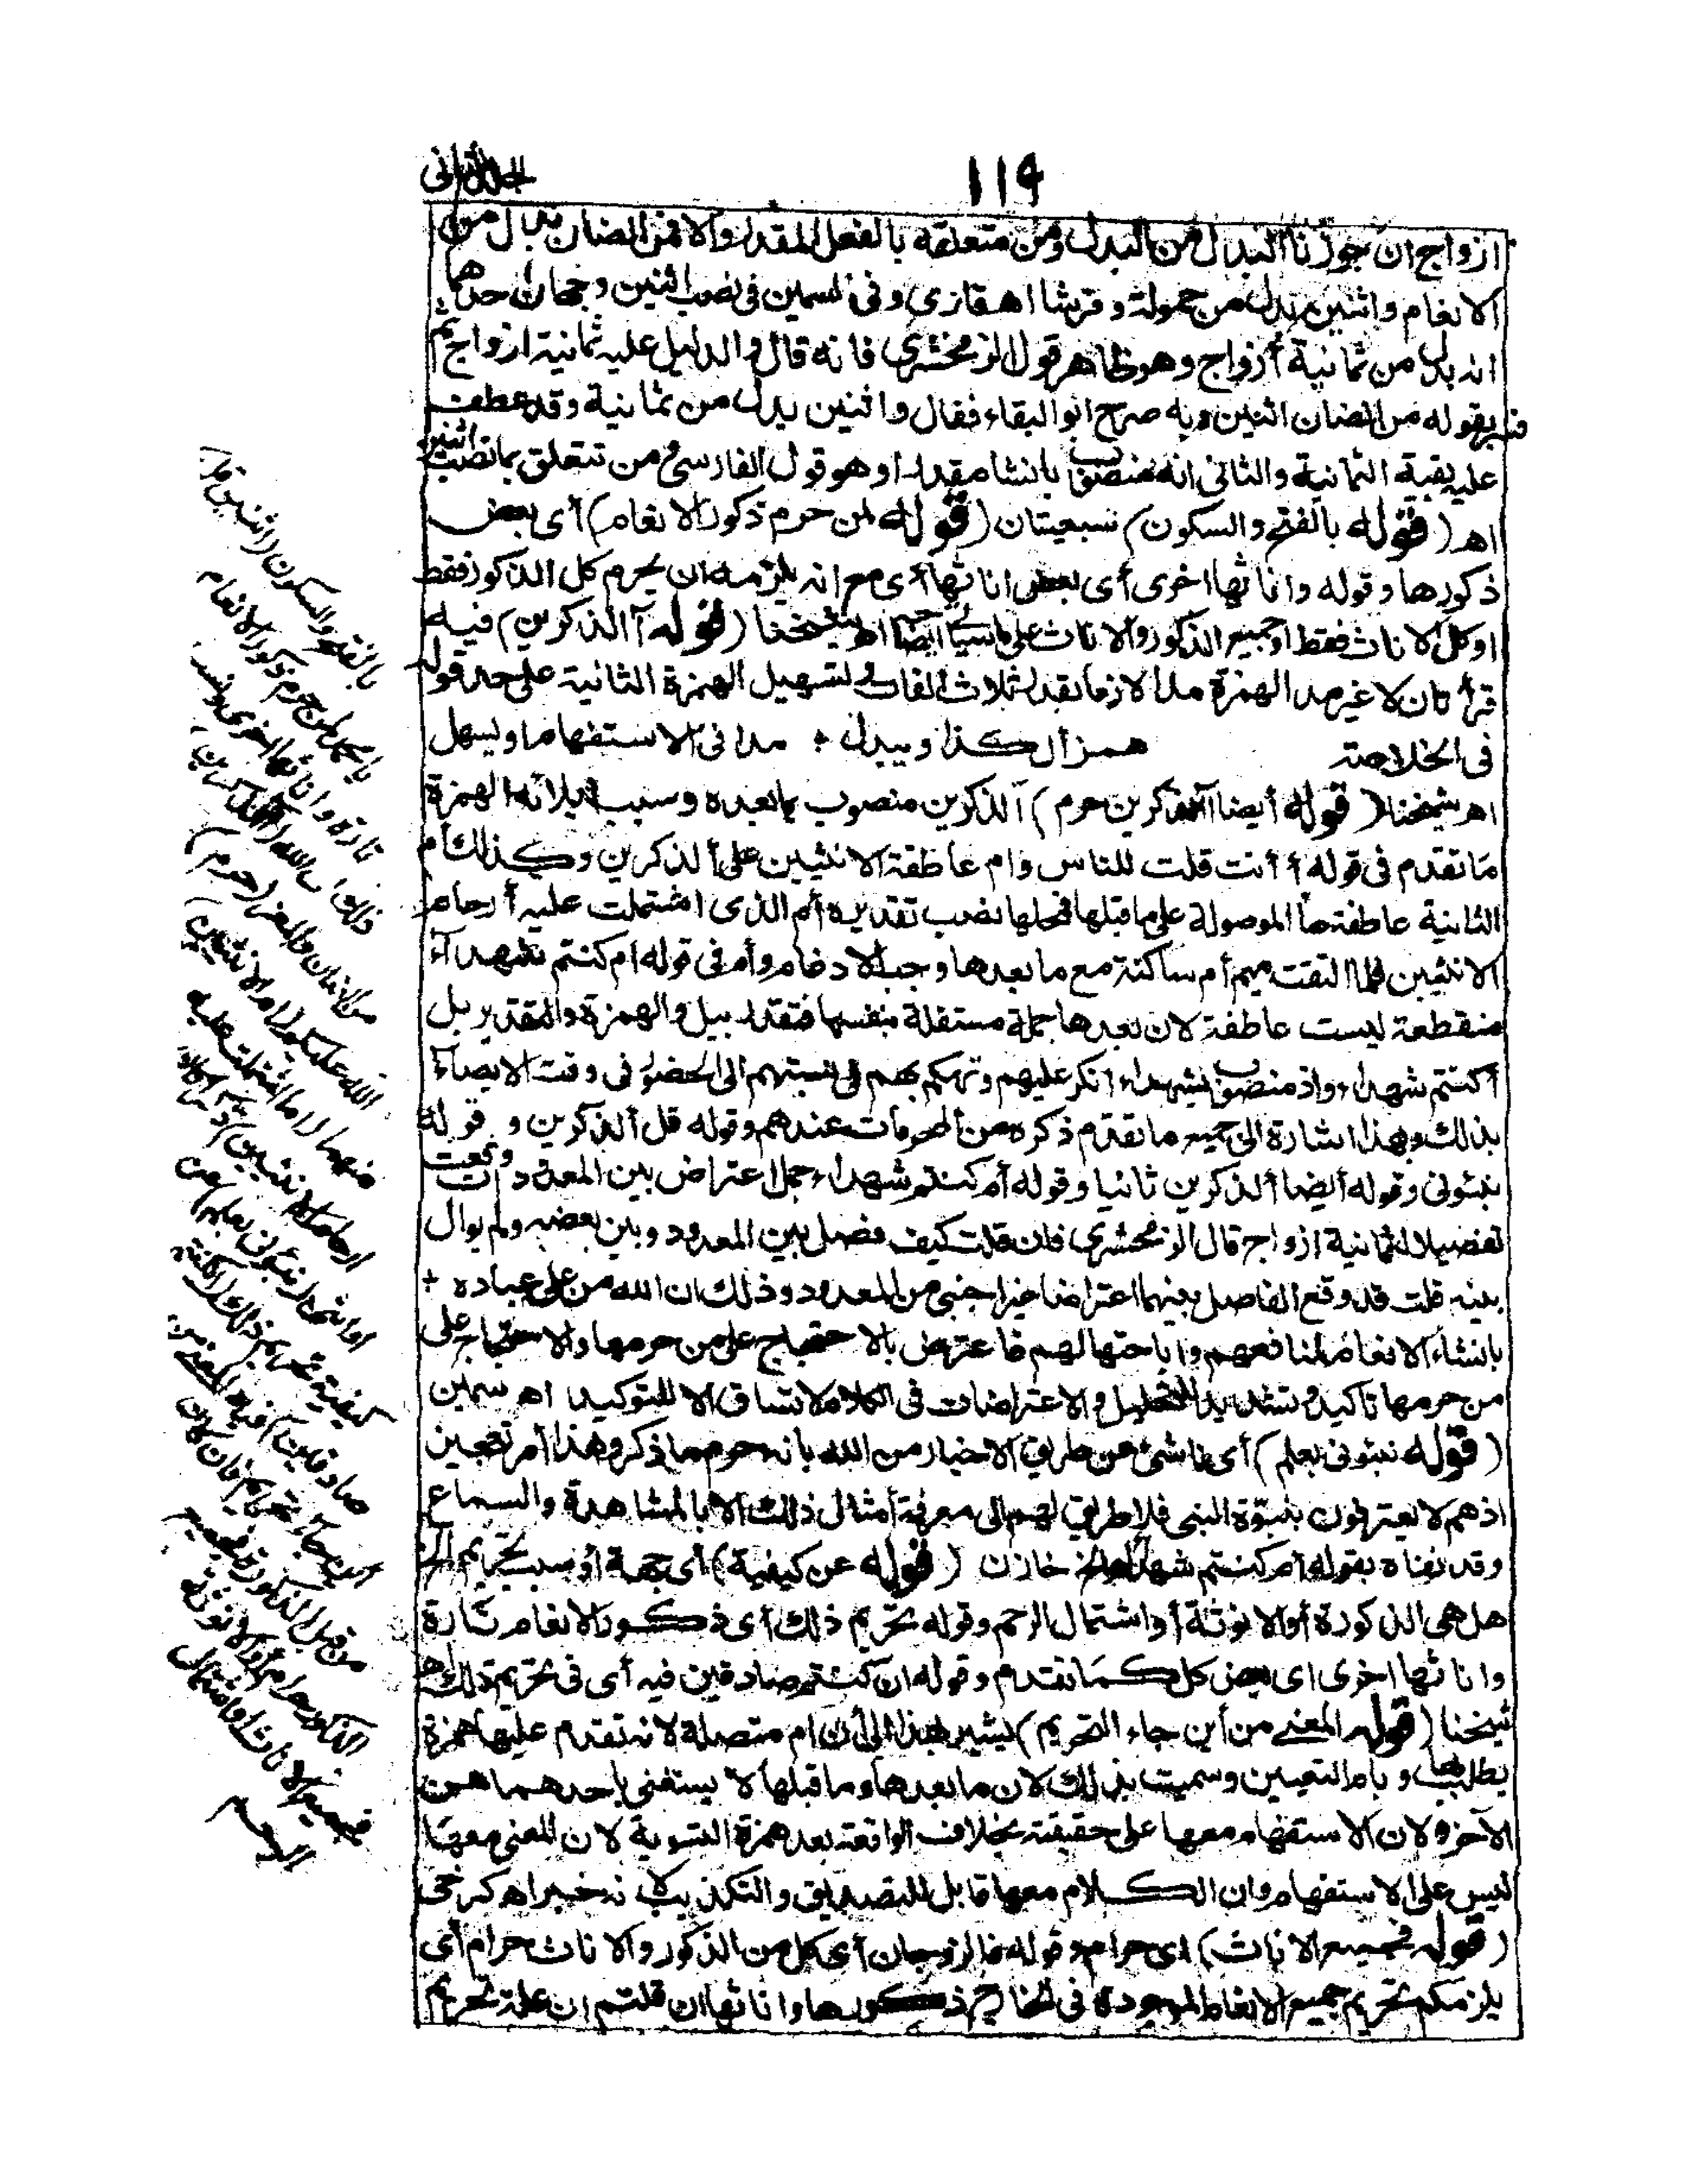 ١١٩
الجلد الثانى
ازواج ان جوزنا البدل من البدل ومن متعلقه بالفعل المقدر والا فمن الضان بدل من
الانعام واثنين بدل من حمولة وفرشا اهـ قارى وفى السمين فى نصب اثنين وجهان احدهما
انه بدل من ثمانية أزواج وهو ظاهر قول الزمخشرى فانه قال والدليل عليه ثمانية ازواج ثم
فسر بقوله من الضان اثنين وبه صرح ابو البقاء فقال واثنين بدل من ثمانية وقد عطف
عليه بقية الثمانية والثانى انه منصوب بانشا مقدرا وهو قول الفارسى ومن تتعلق بما نصب اثنين
اهـ (قوله بالفتح والسكون) سبعيتان (قوله لمن حرم ذكور الانعام) أى بعض
ذكورها وقوله واناثها اخرى أى بعض اناثها أى مع انه يلزمه ان يحرم كل الذكور فقط
اوكل الاناث فقط او جميع الذكور والاناث على ما سياتى ايضا اهـ شيخنا (قوله آالذكرين) فيه
قرأتان لا غير مد الهمزة مدا لازما بقدر ثلاث ألفات وتسهيل الهمزة الثانية على حد قوله
فى الخلاصة همز أل كذا ويبدل + مدا فى الاستفهام او يسهل
اهـ شيخنا (قوله أيضا آالذكرين حرم) آالذكرين منصوب بما بعده وسبب ايلائه الهمزة
ما تقدم فى قوله أ أنت قلت للناس وام عاطفة الانثيين على الذكرين وكذلك أم
الثانية عاطفة ما الموصولة على ما قبلها فمحلها نصب تقديره أم الذى اشتملت عليه أرحام
الانثيين فلما التقت ميم أم ساكنة مع ما بعدها وجب الادغام وأم فى قوله ام كنتم شهدآء
منقطعة ليست عاطفة لان بعدها جملة مستقلة بنفسها فتقدر ببل والهمزة والتقدير بل
أكنتم شهداء واذ منصوب بشهداء انكر عليهم وتهكم بهم فى نسبتهم الى الحضور فى وقت الايصاء
بذلك وبهذا اشارة الى جميع ما تقدم ذكره من المحرمات عندهم وقوله قل آالذكرين وقوله
نبئونى وقوله أيضا آالذكرين ثانيا وقوله أم كنتم شهداء جمل اعتراض بين المعدودات وقعت
تفصيلا لثمانية ازواج قال الزمخشرى فان قلت كيف فصل بين المعدود وبين بعضه ولم يوال
بينه قلت قد وقع الفاصل بينهما اعتراضا غير اجنبى من المعدود وذلك ان الله من على عباده +
بانشاء الانعام لمنافعهم واباحتها لهم فاعترض بالاحتجاج على من حرمها والاحتجاج على
من حرمها تاكيد وتشديد للتحليل والاعتراضات فى الكلام لا تساق الا للتوكيد اهـ سمين
(قوله نبئونى بعلم) أى ناشئ عن طريق الاخبار من الله بانه حرم ما ذكر وهذا أمر تعجيز
اذهم لا يعترفون بنبوة النبى فلا طريق لهم الى معرفة أمثال ذلك الا بالمشاهدة والسماع
وقد نفاه بقوله أم كنتم شهداء الخ خازن (قوله عن كيفية) أى جهة أو سبب تحريم الخ
هل هى الذكورة أو الانوثة أو اشتمال الرحم وقوله تحريم ذلك أى ذكور الانعام تارة
واناثها اخرى اى بعض كل كما تقدم وقوله ان كنتم صادقين فيه أى فى تحريم ذلك اهـ
شيخنا (قوله المعنى من أين جاء التحريم) يشير بهذا الى أن ام متصلة لانه تقدم عليها همزة
يطلب بها وبام التعيين وسميت بذلك لان ما بعدها وما قبلها لا يستغنى باحدهما عن
الآخر ولان الاستفهام معها على حقيقته بخلاف الواقعة بعد همزة التسوية لان المعنى معها
ليس على الاستفهام وان الكلام معها قابل للتصديق والتكذيب لانه خبر اهـ كرخى
(قوله فجميع الاناث) اى حرام وقوله فالزوجان أى كل من الذكور والاناث حرام أى
يلزمكم تحريم جميع الانعام الموجودة فى الخارج ذكورها واناثها ان قلتم ان علة تحريم
بالفتح والسكون (اثنين قل)
يا محمد لمن حرم ذكور الانعام
تارة واناثها اخرى ونسب
ذلك الى الله (آالذكرين)
من الضان والمعز (حرم)
الله عليكم (أم الانثيين)
منهما (أما اشتملت عليه
ارحام الانثيين) ذكرا كان
او انثى (نبئونى بعلم) عن
كيفية تحريم ذلك (ان كنتم
صادقين) فيه المعنى من
اين جاء التحريم فان كان
من قبل الذكورة فجميع
الذكور حرام أو الانوثة
فجميع الاناث أو اشتمال
الرحم